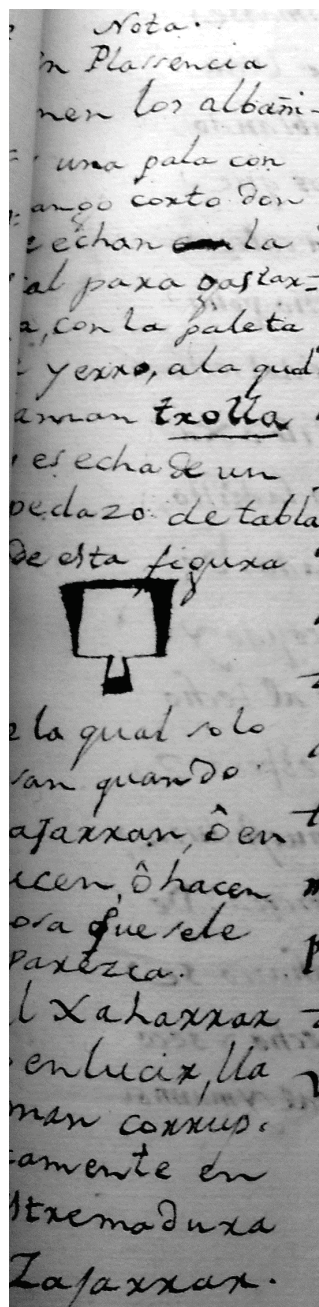 Nota.
en Plassencia
nen los albañi-
una pala con
mango corto don
echan la
cal para gastar=
a, con la paleta
yerro, a la qual
aman trolla
es echa de un
pedazo de tabla
de esta figura
e la qual solo
san quando
ajarran, ô en
ucen, ô hacen
osa que se le
parezca.
l xaharrar
enlucir, lla
man corrup.
tamente en
stremadura
Zajarrar.